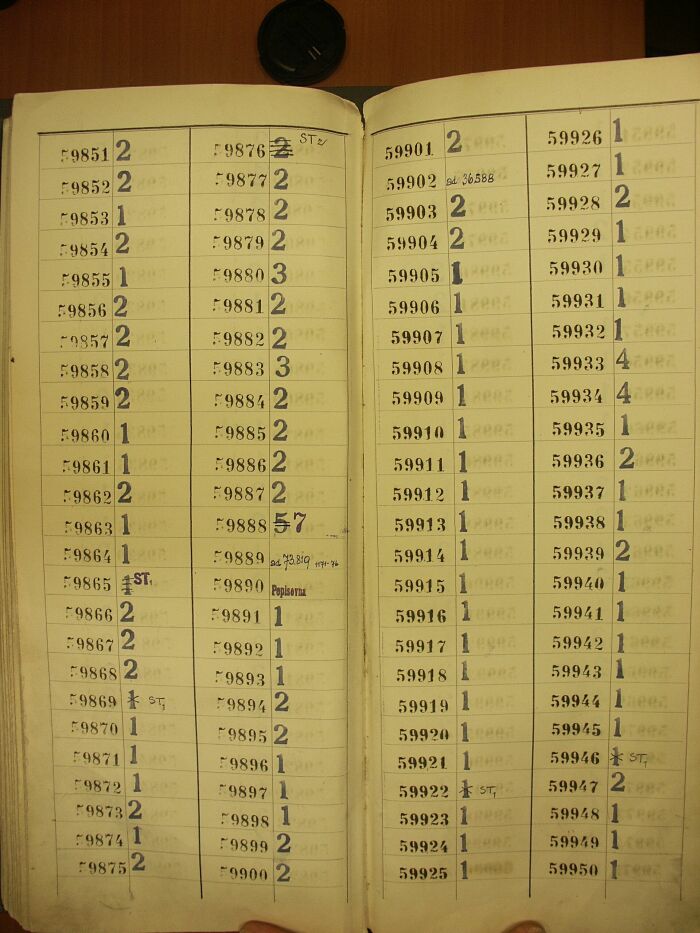 59851 2
59852 2
59853 1
59854 2
59855 1
59856 2
59857 2
59858 2
59859 2
59860 1
59861 1
59862 2
59863 1
59864 1
59865 1 ST1
59866 2
59867 2
59868 2
59869 1 ST1
59870 1
59871 1
59872 1
59873 2
59874 1
59875 2
59876 2 ST2
59877 2
59878 2
59879 2
59880 3
59881 2
59882 2
59883 3
59884 2
59885 2
59886 2
59887 2
59888 5 7
59889 ad 73.819 1171-76
59890 Popisovna
59891 1
59892 1
59893 1
59894 2
59895 2
59896 1
59897 1
59898 1
59899 2
59900 2
59901 2
59902 ad 36588
59903 2
59904 2
59905 1
59906 1
59907 1
59908 1
59909 1
59910 1
59911 1
59912 1
59913 1
59914 1
59915 1
59916 1
59917 1
59918 1
59919 1
59920 1
59921 1
59922 1 ST1
59923 1
59924 1
59925 1
59926 1
59927 1
59928 2
59929 1
59930 1
59931 1
59932 1
59933 4
59934 4
59935 1
59936 2
59937 1
59938 1
59939 2
59940 1
59941 1
59942 1
59943 1
59944 1
59945 1
59946 1 ST1
59947 2
59948 1
59949 1
59950 1